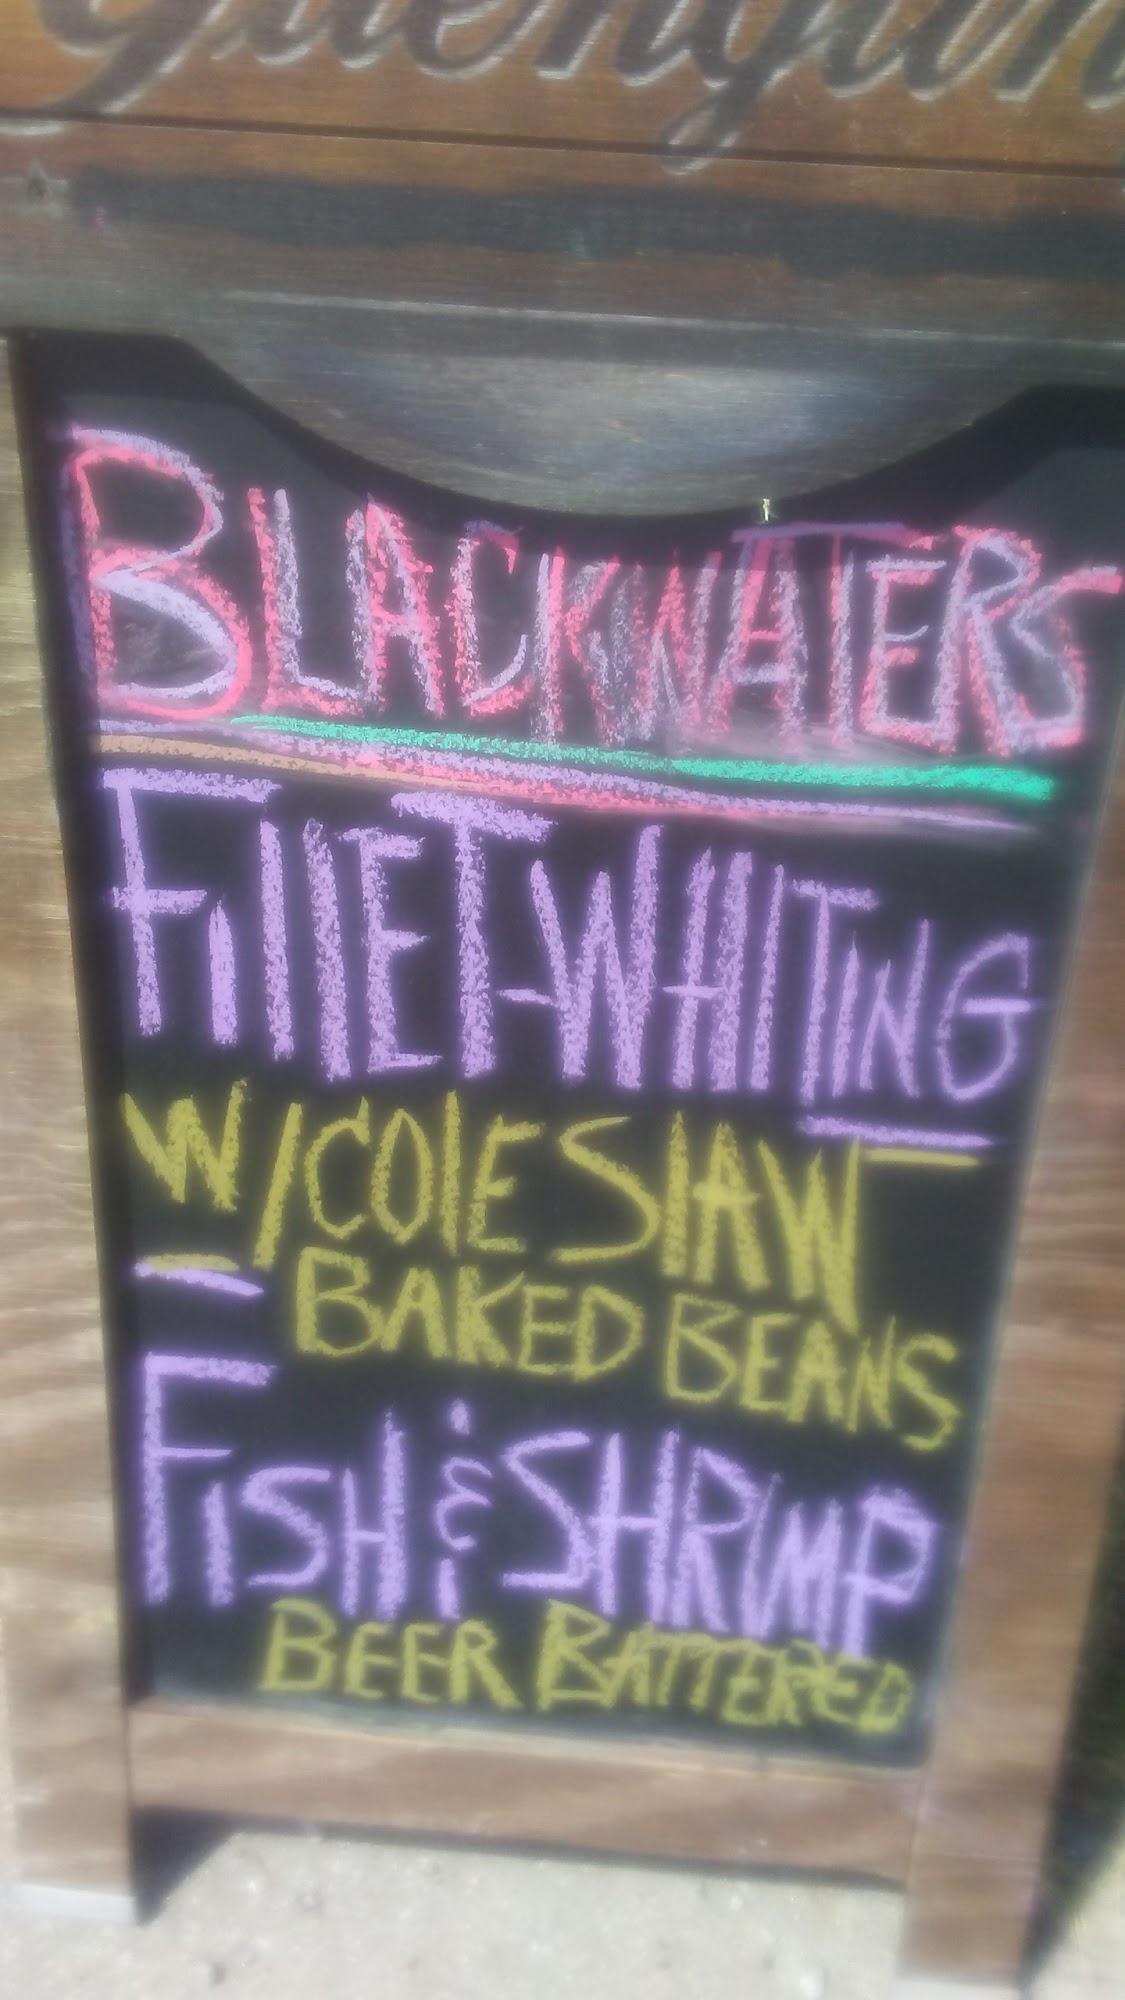 BLACKWATERS
FillET-WHITING
W/COlE SlAW
BAKED BEANS
FISH & SHRIMP
BEER BATTERED